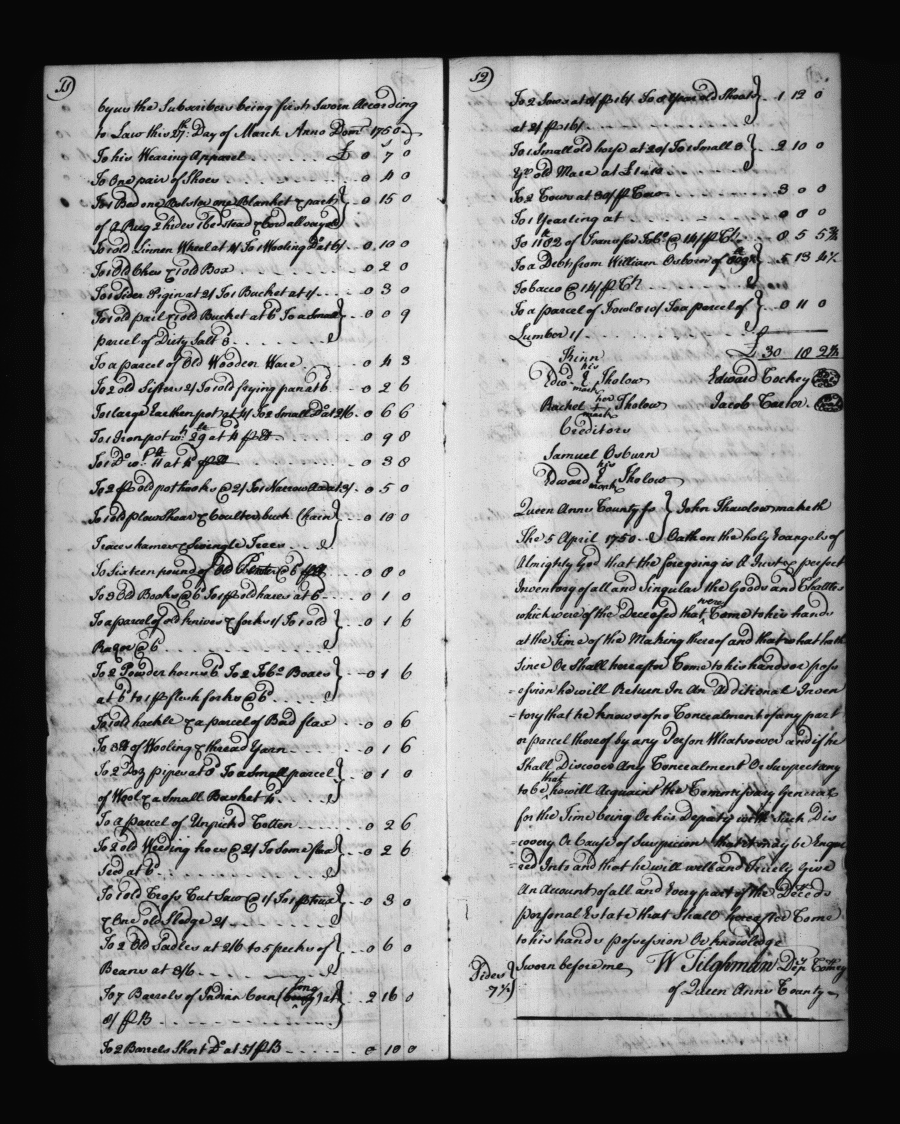 11
by us the Subscribers being first Sworn According
to Law this 27th: Day of March Anno Dom: 1750
To his Wearing Apparel £ 0 7 0
To One pair of Shoes 0 4 0
To 1 Bed one Bolster one Blanket & part
of A Rug 2 hides 1 Bedstead & Cord all very old 0 15 0
To 1 old Linnen Wheel at 4/ To 1 Wooling Do. at 6/ 0 10 0
To 1 Old Chest & 1 old Box 0 2 0
To 1 Sider Pigin at 2/ To 1 Bucket at 1/ 0 3 0
To 1 old pail & 1 old Bucket at 6d To a Small
parcel of Dirty Salt 3 0 0 9
To a parcel of Old Wooden Ware 0 4 3
To 2 old Sifters 2/ To 1 old frying pan at 6 0 2 6
To 1 large Earthen pot at 4/ To 2 Small Do. at 2/6 0 6 6
To 1 Iron pot wt. 29 at 4 p lb 0 9 8
To 1 Do. wt. 11 at 4d p lb 0 3 8
To 2 pr old pot hooks @ 2/ To 1 Narrow Ax at 3/ 0 5 0
To 1 old plow Shear & Coulter buck Chain
Traces hames & Swingle Trees 0 10 0
To Sixteen pound of Old Pewter @ 6 p lb 0 8 0
To 3 Old Books @ 6 To 1 pr old hares at 6 0 1 0
To a parcel of old knives & forks 1/ To 1 old
Razor @ 6 0 1 6
To 2 Powder horns 6 To 2 Tobo. Boxes
at 6d to 1 pr flesh forks @ 6d 0 1 6
To 1 old hackle & a parcel of Bad flax 0 0 6
To 3 lb of Wooling & thread Yarn 0 1 6
To 2 Doz pipes at 8d To a Small parcel
of Wool & a Small Basket 4d 0 1 0
To a parcel of Unpickd Cotten 0 2 6
To 2 old Weeding hoes @ 2/ To Some flax
Seed at 6 0 2 6
To 1 old Cross Cut Saw @ 1/ To 1 pr
& One old Sledge 2/ 0 3 0
To 2 Old Sadles at 2/6 to 5 pecks of
Beans at 3/6 0 6 0
To 7 Barrels of Indian Corn (long) at
8/ p B 2 16 0
To 2 Barrels Short Do. at 5/ p B 0 10 0
12
To 2 Sows at 8/ p 16/ To 2 Year old Shoats
at 2/ p 16/ 1 12 0
To 1 Small old horse at 20/ To 1 Small 3
Yr. old Mare at £1 10 2 10 0
To 2 Cows at 30/ p Cow 3 0 0
To 1 Yearling at 0 8 0
To 1182 of Transfer Tobo. @ 14/ p Ct. 8 5 5¾
To a Debt from William Osborn of
Tobacco @ 14/ p Ct. 5 13 4¼
To a parcel of Towls 10/ To a parcel of
Lumber 1/ 0 11 0
£ 30 18 2¾
Kinn
Edwd. his mark Tholow Edward Cockey
Rachel her mark Tholow Jacob Carter
Creditors
Samuel Osburn
Edward his mark Tholow
Queen Anns County ss John Thawlow maketh
The 5 April 1750 Oath on the holy Evangels of
Almighty God that the foregoing is A Just & perfect
Inventory of all and Singular the Goods and Chattles
which were of the Deceased that were Come to his hands
at the Time of the Making thereof and that what hath
Since Or Shall hereafter Come to his hands or poss
=ession he will Return In An Additional Inven
=tory that he knows of no Concealment of any part
or parcel thereof by any Person Whatsoever and if he
Shall Discover Any Concealment Or Suspect any
to be, that he will Acquaint the Commissary General
for the Time being Or his Deputy with Such Dis
=covery Or Cause of Suspicion that it may be Enqui
=red Into and that he will well and Truely Give
An Account of all and Every part of the Deced's
personal Estate that Shall hereafter Come
to his hands possession Or knowledge
Sides 7½ Sworn before me W Tilghman Dep. Comry
of Queen Anns County